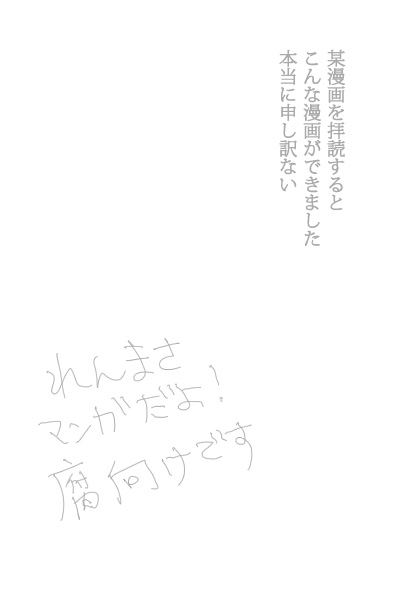 某漫画を拝読すると
こんな漫画ができました
本当に申し訳ない
れんまさ
マンガだよ!
腐向けです